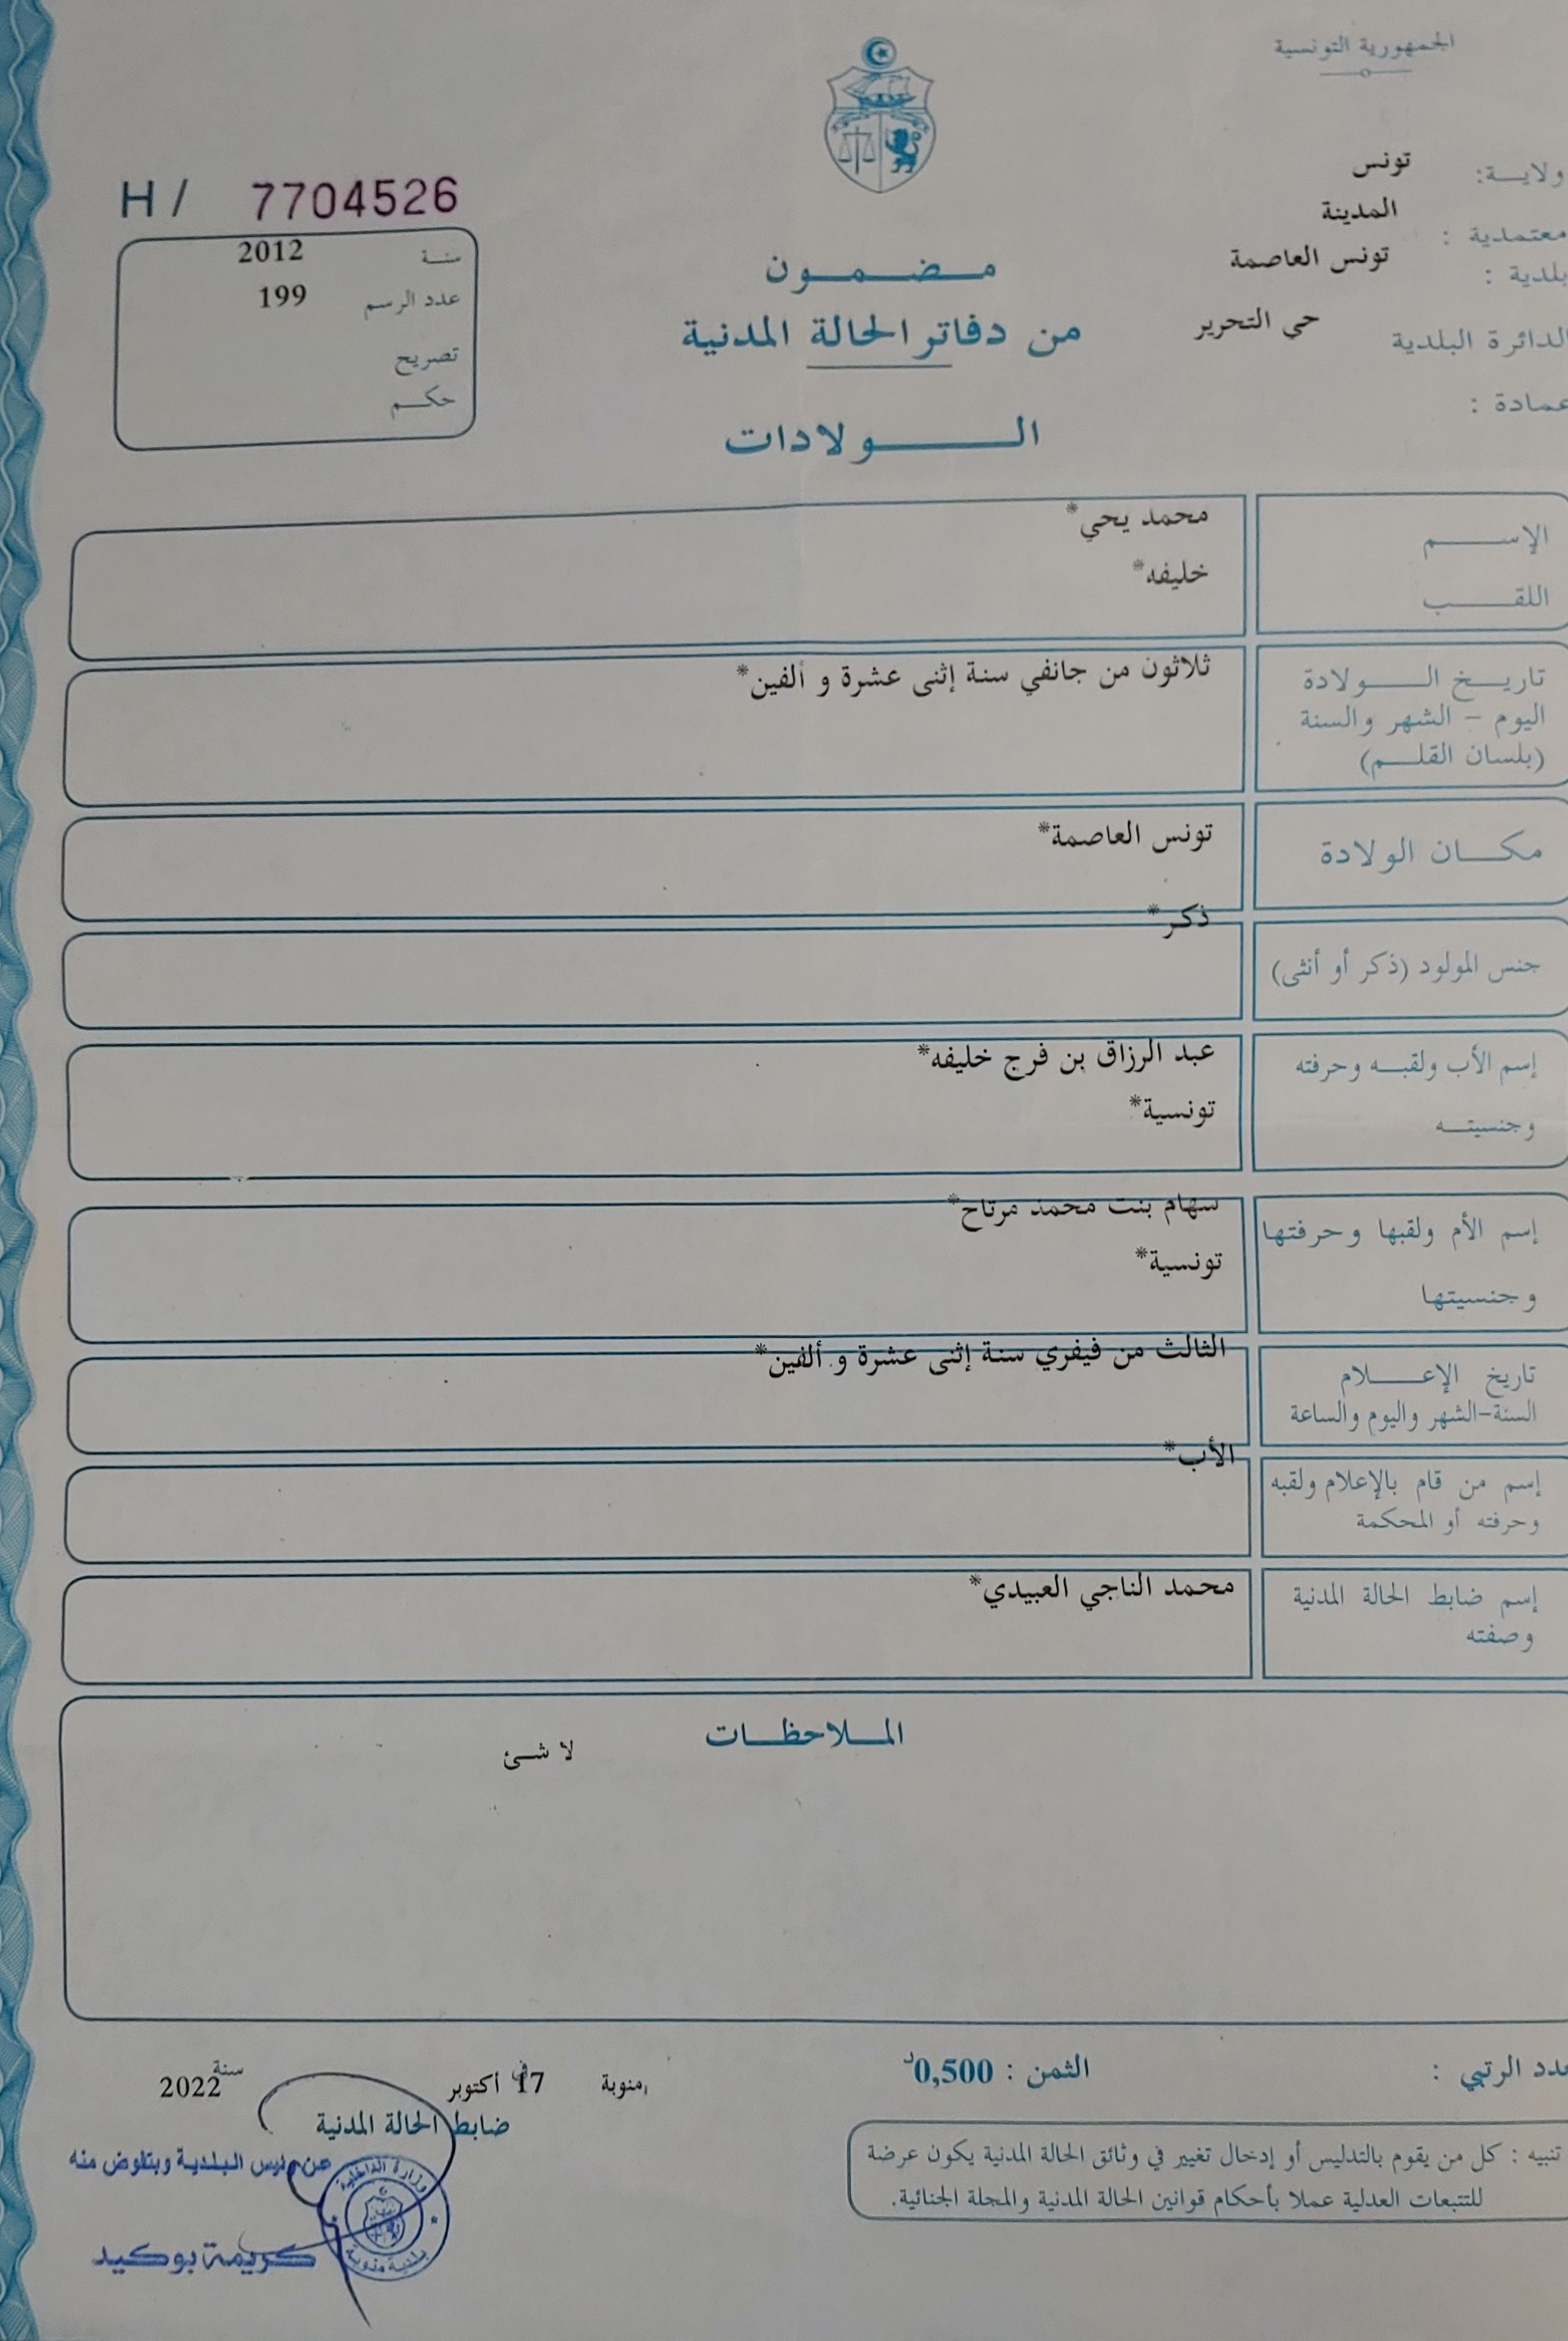 الجمهورية التونسية
ولايـــة: تونس
معتمدية : المدينة
بلدية : تونس العاصمة
الدائرة البلدية حي التحرير
عمادة :
H / 7704526
سنـــة 2012
عدد الرسم 199
تصريح
حكـــم
مـــضـــمـــون
من دفاتر الحالة المدنية
الـــــولادات
الإســــــم محمد يحي*
اللقــــــب خليفه*
تاريـــخ الـــــولادة ثلاثون من جانفي سنة إثنى عشرة و ألفين*
اليوم - الشهر والسنة
(بلسان القلـــم)
مكـــان الولادة تونس العاصمة*
جنس المولود (ذكر أو أنثى) ذكر*
إسم الأب ولقبـــه وحرفته عبد الرزاق بن فرج خليفه*
وجنسيتـــه تونسية*
إسم الأم ولقبها وحرفتها سهام بنت محمد مرتاح*
وجنسيتها تونسية*
تاريخ الإعـــــلام الثالث من فيفري سنة إثنى عشرة و ألفين*
السنة-الشهر واليوم والساعة
إسم من قام بالإعلام ولقبه الأب*
وحرفته أو المحكمة
إسم ضابط الحالة المدنية محمد الناجي العبيدي*
وصفته
المـــلاحظـــات
لا شـــئ
عدد الرتبي :
الثمن : 0,500د
منوبة في 17 أكتوبر سنة 2022
ضابط الحالة المدنية
عن رئيس البلدية وبتفوض منه
كريمة بوكيد
وزارة الداخلية
بلدية منوبة
تنبيه : كل من يقوم بالتدليس أو إدخال تغيير في وثائق الحالة المدنية يكون عرضة
للتتبعات العدلية عملا بأحكام قوانين الحالة المدنية والمجلة الجنائية.